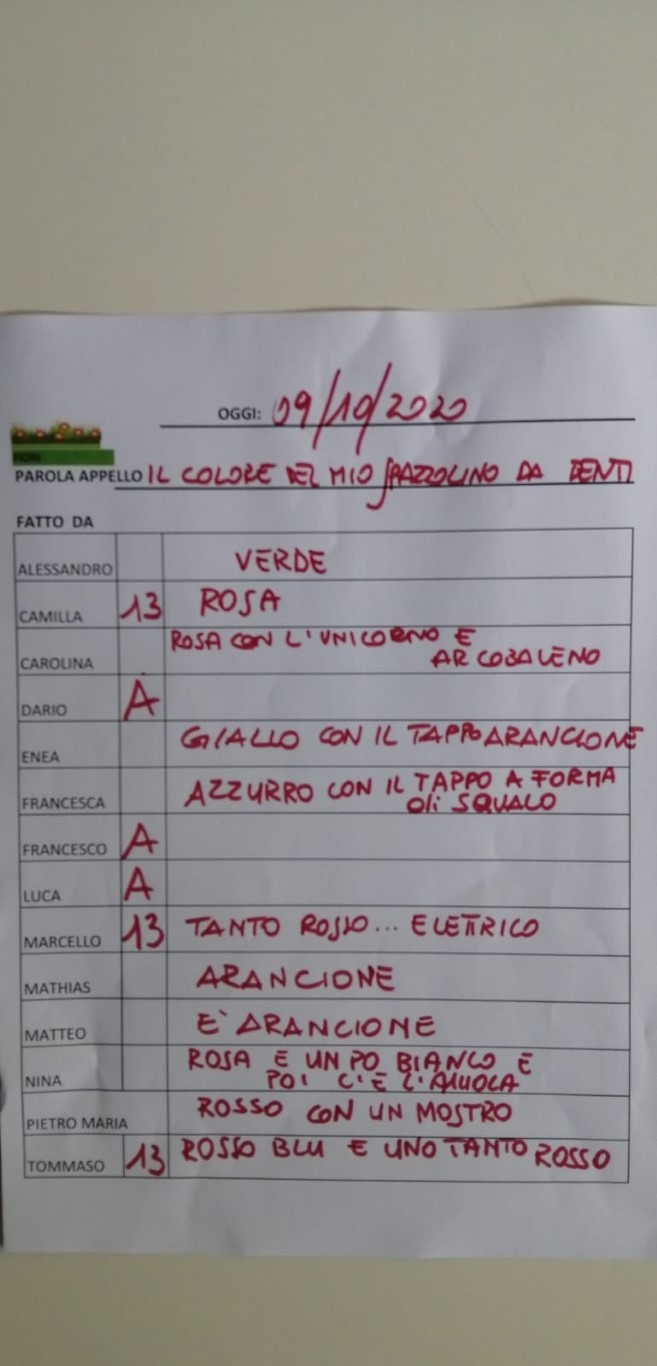 OGGI: 09/10/2020
FIORI
PAROLA APPELLO IL COLORE DEL MIO SPAZZOLINO DA DENTI
FATTO DA
ALESSANDRO VERDE
CAMILLA 13 ROSA
CAROLINA ROSA CON L'UNICORNO E
ARCOBALENO
DARIO A
ENEA GIALLO CON IL TAPPO ARANCIONE
FRANCESCA AZZURRO CON IL TAPPO A FORMA
di SQUALO
FRANCESCO A
LUCA A
MARCELLO 13 TANTO ROSSO... ELETTRICO
MATHIAS ARANCIONE
MATTEO E' ARANCIONE
NINA ROSA E UN PO BIANCO E
POI C'È
PIETRO MARIA ROSSO CON UN MOSTRO
TOMMASO 13 ROSSO BLU E UNO TANTO ROSSO